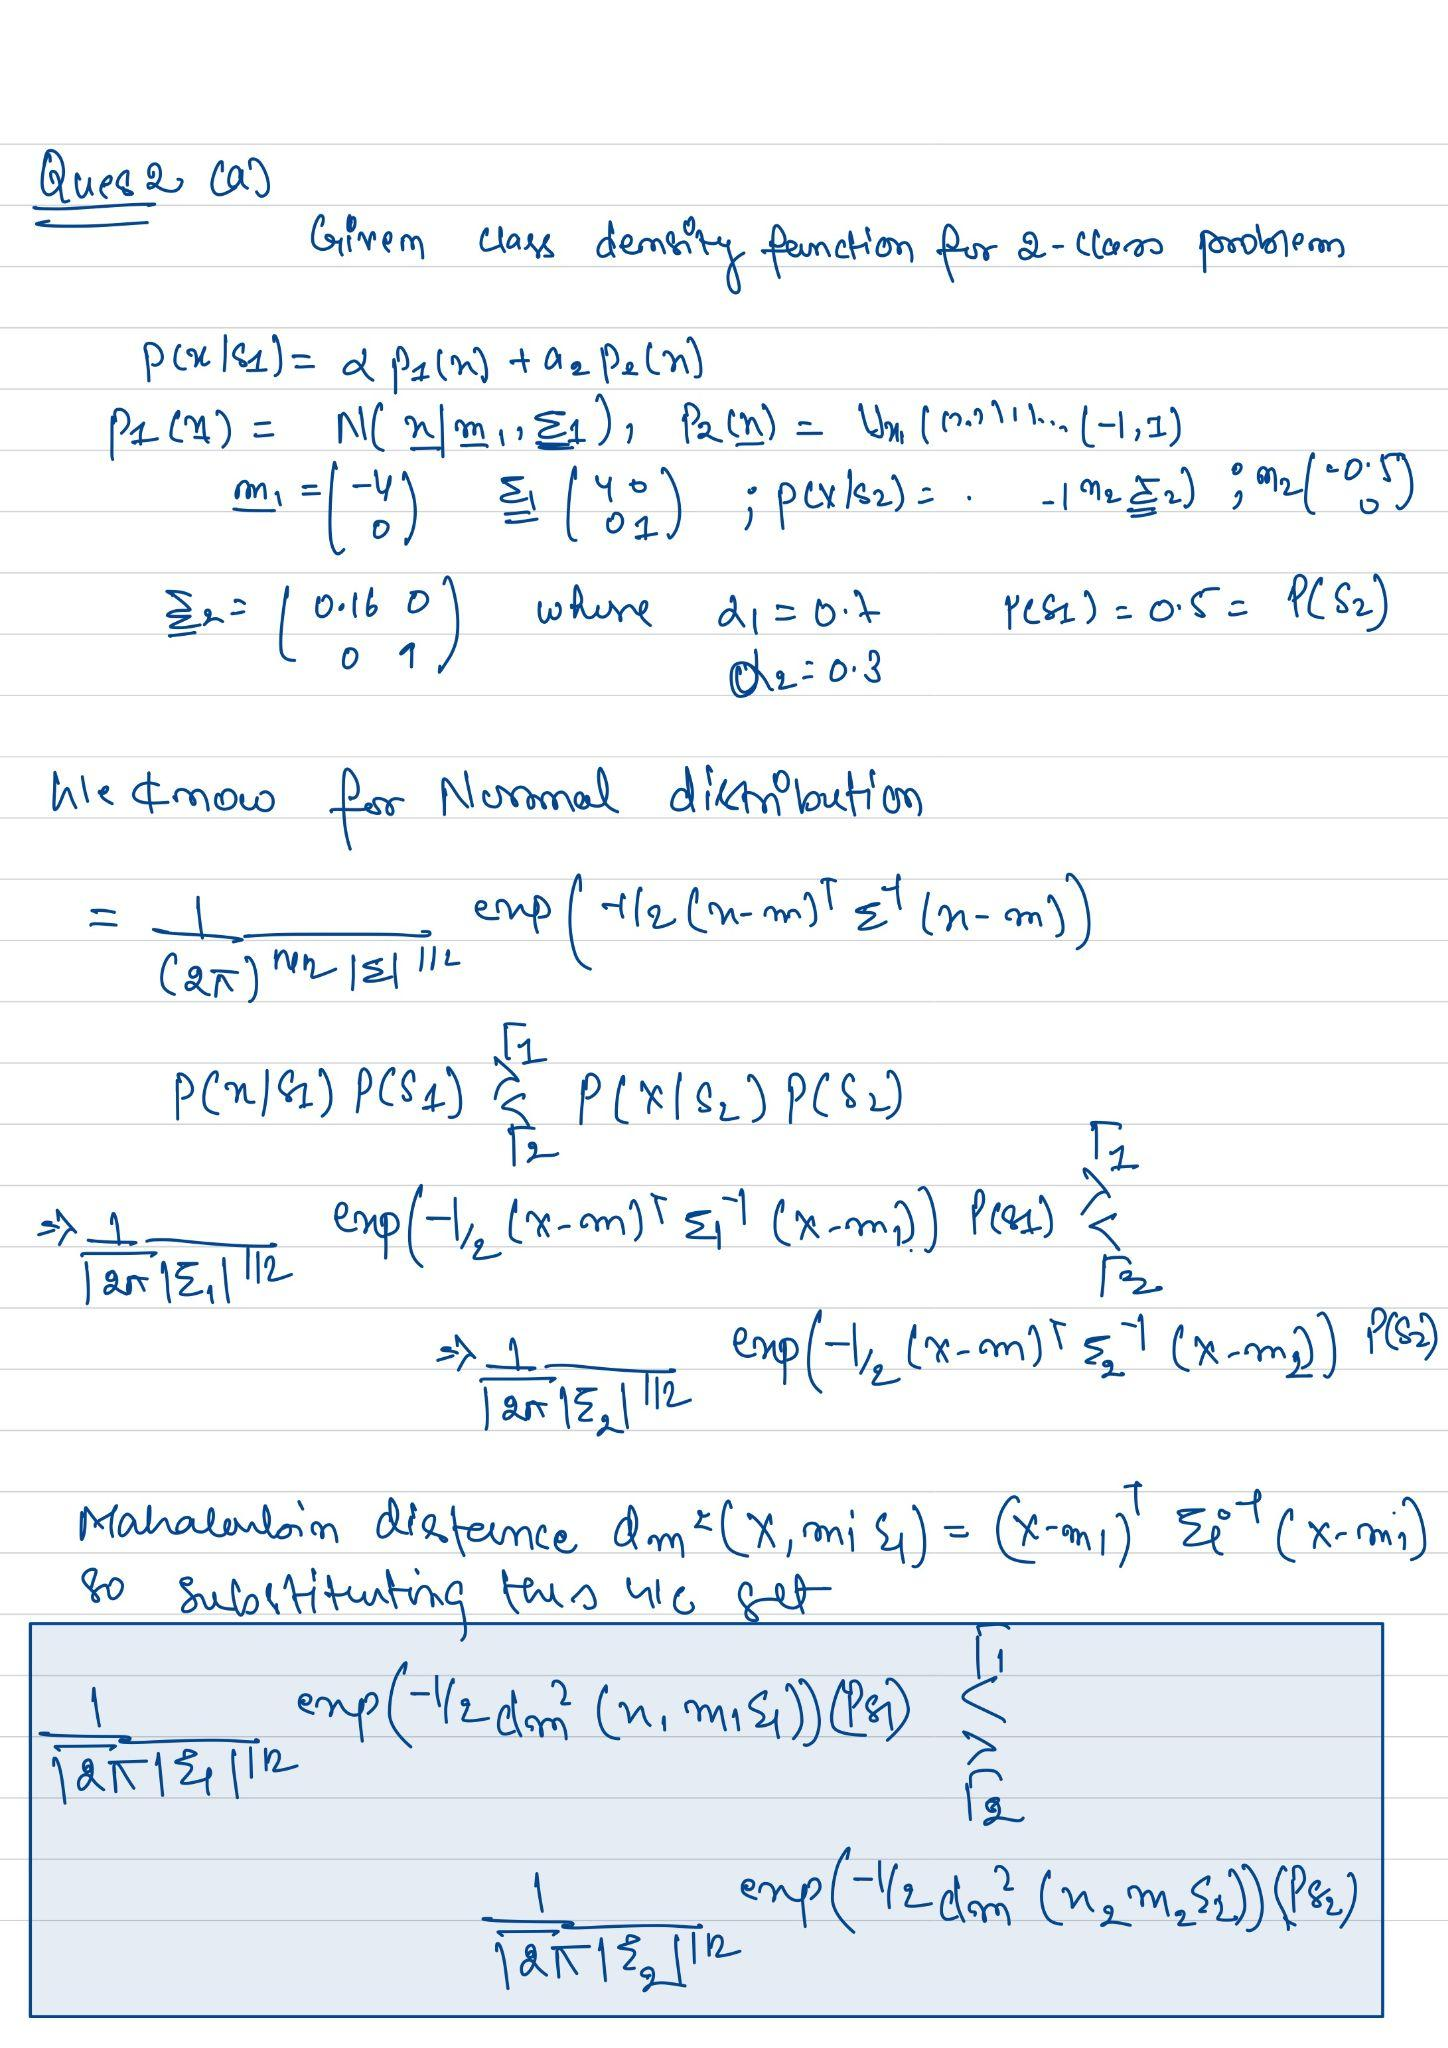 Ques 2 (a)
Given class density function for 2-class problem
P(x/S1) = α p1(x) + a2 p2(x)
P1(x) = N( x | m1, Σ1 ), P2(x) = (-1,1)
m1 = (-4 0) Σ1 (4 0 0 1) ; P(x/S2) = . -1 m2 Σ2) ; m2 (-0.5 0)
Σ2 = (0.16 0 0 1) where α1 = 0.7 P(S1) = 0.5 = P(S2)
α2 = 0.3
We know for Normal distribution
= 1/(2π)^n/2 |Σ|^1/2 exp(-1/2 (x-m)^T Σ^-1 (x-m))
Γ1
P(x/S1) P(S1) > < P(x/S2) P(S2)
Γ2
Γ1
⇒ 1/√2π |Σ1|^1/2 exp(-1/2 (x-m)^T Σ1^-1 (x-m1)) P(S1) > <
Γ2
⇒ 1/√2π |Σ2|^1/2 exp(-1/2 (x-m)^T Σ2^-1 (x-m2)) P(S2)
distance dm^2 (x, mi Σ1) = (x-m1)^T Σi^-1 (x-mi)
so substituting this we get
Γ1
1/√2π |Σ1|^1/2 exp(-1/2 dm^2 (x, m1 Σ1)) (PS1) < >
Γ2
1/√2π |Σ2|^1/2 exp(-1/2 dm^2 (x2 m2 Σ2)) (PS2)